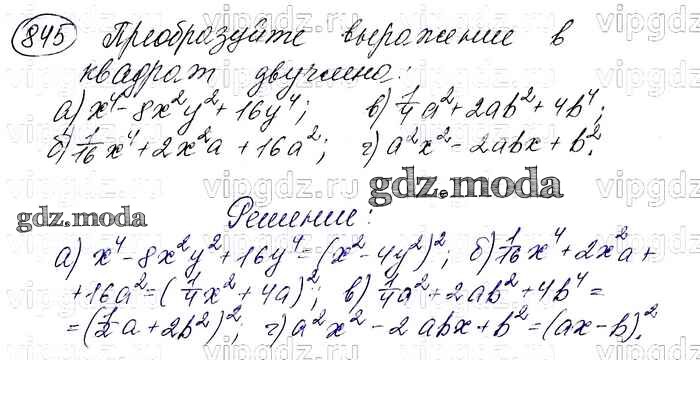 845 Преобразуйте выражение в
квадрат двучлена:
а) x⁴ - 8x²y² + 16y⁴; в) 1/4 a² + 2ab² + 4b⁴;
б) 1/16 x⁴ + 2x²a + 16a²; г) a²x² - 2abx + b².
gdz.moda
gdz.moda
Решение:
а) x⁴ - 8x²y² + 16y⁴ = (x² - 4y²)²; б) 1/16 x⁴ + 2x²a +
+ 16a² = (1/4 x² + 4a)²; в) 1/4 a² + 2ab² + 4b⁴ =
= (1/2 a + 2b²)²; г) a²x² - 2abx + b² = (ax - b)².
vipgdz.ru